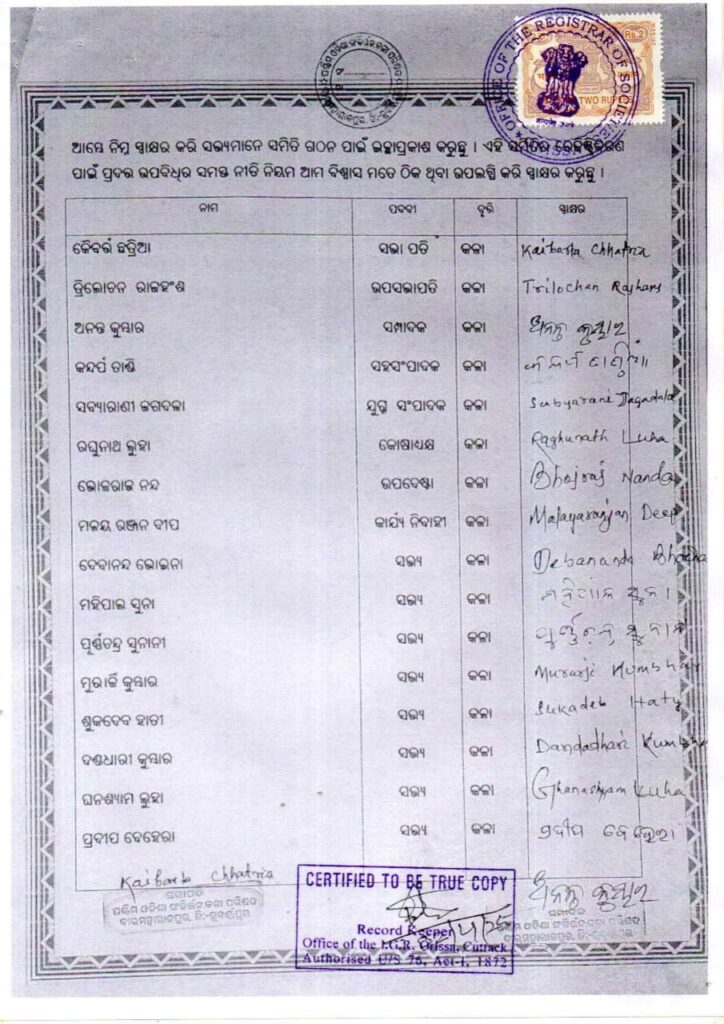 OFFICE OF THE REGISTRAR OF SOCIETIES
Rs.2
TWO RUPEES
ଆମ୍ଭେ ନିମ୍ନ ସ୍ୱାକ୍ଷର କରି ସଭ୍ୟମାନେ ସମିତି ଗଠନ ପାଇଁ ଇଚ୍ଛାପ୍ରକାଶ କରୁଛୁ । ଏହି ସମିତିର ରେଜିଷ୍ଟ୍ରିକରଣ
ପାଇଁ ପ୍ରଦତ୍ତ ଉପବିଧିର ସମସ୍ତ ନୀତି ନିୟମ ଆମ ବିଶ୍ୱାସ ମତେ ଠିକ ଥିବା ଉପଲବ୍ଧି କରି ସ୍ୱାକ୍ଷର କରୁଛୁ ।
ନାମ ପଦବୀ ବୃତ୍ତି ସ୍ୱାକ୍ଷର
କୈବର୍ତ୍ତ ଛତ୍ରିଆ ସଭା ପତି କଳା Kaibarta Chhatria
ତ୍ରିଲୋଚନ ରାଜହଂଶ ଉପସଭାପତି କଳା Trilochan Rajhans
ଅନନ୍ତ କୁମ୍ଭାର ସମ୍ପାଦକ କଳା ଅନନ୍ତ କୁମ୍ଭାର
କନ୍ଦର୍ପ ତାଣ୍ଡି ସହସଂପାଦକ କଳା
ସବ୍ୟାରାଣୀ ଜଗଦଳା ଯୁଗ୍ମ ସଂପାଦକ କଳା Subyarani Jagadala
ରଘୁନାଥ ଲୁହା କୋଷାଧ୍ୟକ୍ଷ କଳା Raghunath Luha
ଭୋଜରାଜ ନନ୍ଦ ଉପଦେଷ୍ଟା କଳା Bhojraj Nanda
ମଳୟ ରଞ୍ଜନ ଦୀପ କାର୍ଯ୍ୟ ନିବାହୀ କଳା Malayaranjan Deep
ଦେବାନନ୍ଦ ଭୋଇନା ସଭ୍ୟ କଳା Debananda Bhoina
ମହିପାଲ ସୁନା ସଭ୍ୟ କଳା ମହିପାଲ ସୁନା
ପୂର୍ଣ୍ଣଚନ୍ଦ୍ର ସୁନାନୀ ସଭ୍ୟ କଳା ପୂର୍ଣ୍ଣଚନ୍ଦ୍ର ସୁନାନୀ
ମୁରାର୍ଜି କୁମ୍ଭାର ସଭ୍ୟ କଳା Murarji Kumbhar
ଶୁକଦେବ ହାତୀ ସଭ୍ୟ କଳା Sukadeb Haty
ଦଣ୍ଡଧାରୀ କୁମ୍ଭାର ସଭ୍ୟ କଳା Dandadhari Kumbhar
ଘନଶ୍ୟାମ ଲୁହା ସଭ୍ୟ କଳା Ghanashyam Luha
ପ୍ରଦୀପ ବେହେରା ସଭ୍ୟ କଳା ପ୍ରଦୀପ ବେହେରା
Kaibarta Chhatria
ସଭାପତି
CERTIFIED TO BE TRUE COPY
Record Keeper
Office of the I.G.R. Orissa, Cuttack
Authorised U/S 76, Act-I, 1872
ଅନନ୍ତ କୁମ୍ଭାର
ସମ୍ପାଦକ